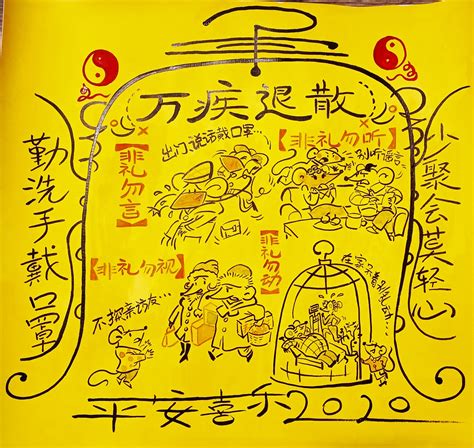 万疾退散
勤洗手戴口罩
少聚会莫轻心
【非礼勿言】
出门说话戴口罩…
【非礼勿听】
别听谣言
【非礼勿视】
不探亲访友…
【非礼勿动】
平安喜乐2020